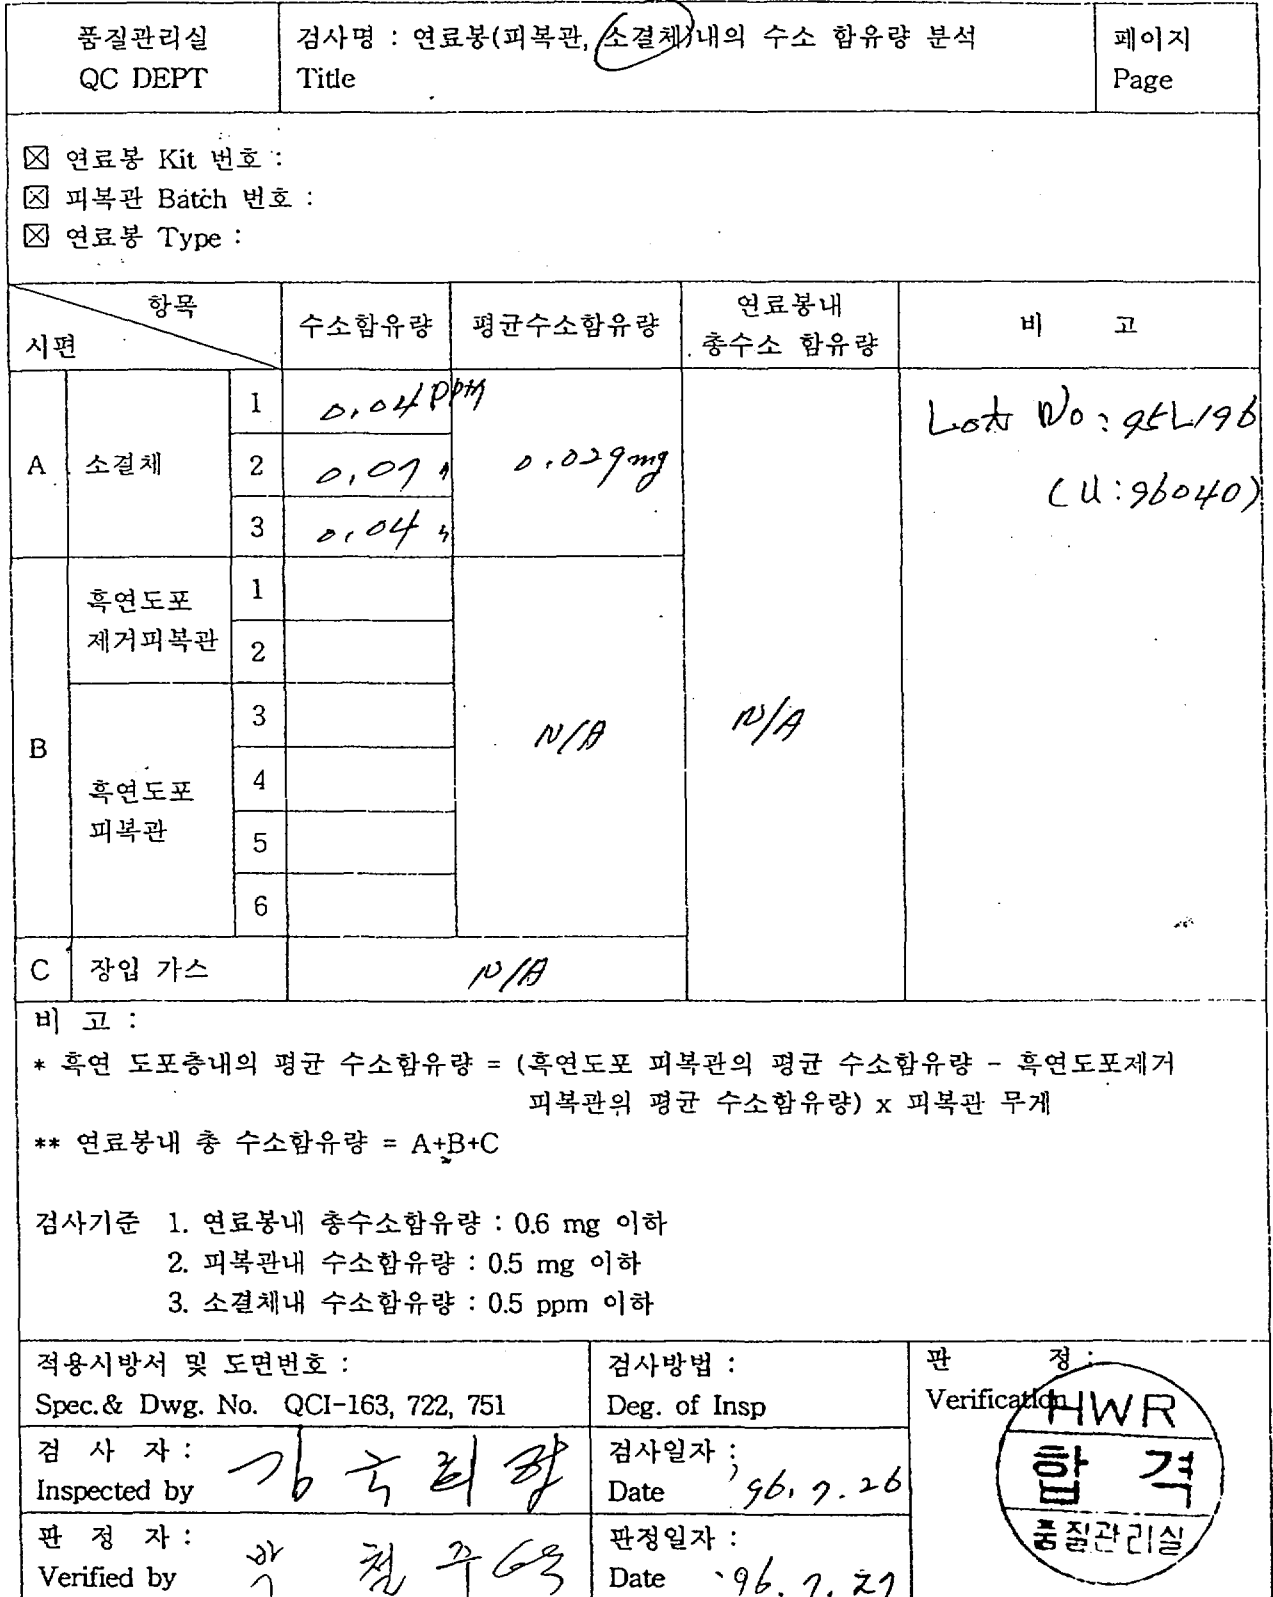 품질관리실
QC DEPT
검사명 : 연료봉(피복관, 소결체)내의 수소 함유량 분석
Title
페이지
Page
☒ 연료봉 Kit 번호 :
☒ 피복관 Batch 번호 :
☒ 연료봉 Type :
항목
시편
수소함유량
평균수소함유량
연료봉내
총수소 함유량
비 고
A
소결체
1
0.04 ppm
2
0.07 〃
3
0.04 〃
0.029mg
N/A
Lot No : 95L196
(U : 96040)
B
흑연도포
제거피복관
1
2
흑연도포
피복관
3
4
5
6
N/A
C
장입 가스
N/A
비 고 :
* 흑연 도포층내의 평균 수소함유량 = (흑연도포 피복관의 평균 수소함유량 - 흑연도포제거
피복관의 평균 수소함유량) x 피복관 무게
** 연료봉내 총 수소함유량 = A+B+C
검사기준 1. 연료봉내 총수소함유량 : 0.6 mg 이하
2. 피복관내 수소함유량 : 0.5 mg 이하
3. 소결체내 수소함유량 : 0.5 ppm 이하
적용시방서 및 도면번호 :
Spec.& Dwg. No. QCI-163, 722, 751
검사방법 :
Deg. of Insp
판 정 :
Verification
HWR
합 격
품질관리실
검 사 자 :
Inspected by
검사일자 :
Date '96. 7. 26
판 정 자 :
Verified by 박 철 주
판정일자 :
Date '96. 7. 27